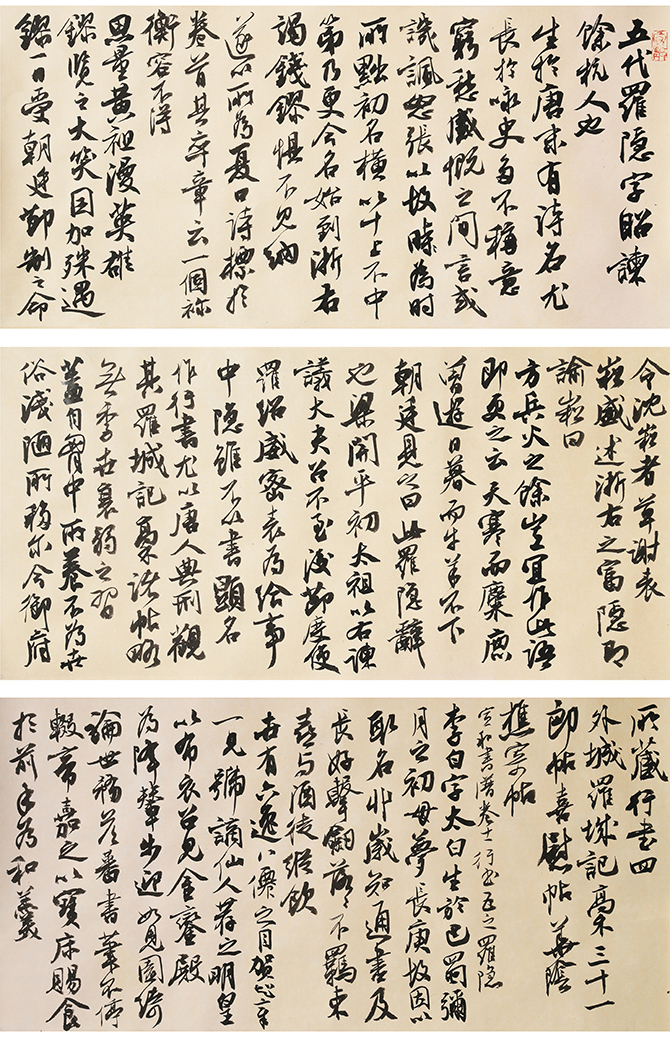 五代羅隱字昭諫
餘杭人也
生於唐末有詩名尤
長於咏史多不稱意
窮愁感慨之間言或
譏諷怒張以故為時
所黜初名橫以十上不中
第乃更今名始到浙右
謁錢鏐懼不見納
遂以所為夏口詩標於
卷首其卒章云一個祢
衡容不得
思量黃祖漫英雄
鏐覽之大笑因加殊遇
鏐一日受朝廷節制之命
令沈崧者草謝表
崧盛述浙右之富隱即
諭崧曰
方兵火之餘豈宜作此語
即更之云天寒而麋鹿
曾遊日暮而牛羊不下
朝廷見之曰此羅隱辭
也梁開平初太祖以右諫
議大夫召不至後節度使
羅紹威密表為給事
中隱雖不以書顯名
作行書尤以唐人典刑觀
其羅城記稾諸帖略
無季世衰弱之習
蓋自胷中所養不為世
俗淺陋所移尔今御府
所藏行書四
外城羅城記稾三十一
郎帖喜慰帖華陰
樵帖
宣和書譜卷十一行書五之羅隱
李白字太白生於巴蜀彌
月之初母夢長庚故因以
取名歲知通書及
長好擊劍落落不羈束
喜与酒徒縱飲
世有六逸八僊之目賀知章
一見號謫仙人荐之明皇
以布衣召見金鑾殿
為降輦步迎如見園綺
論世務答番書筆不停
輟帝嘉之以寶床賜食
於前手為和羹